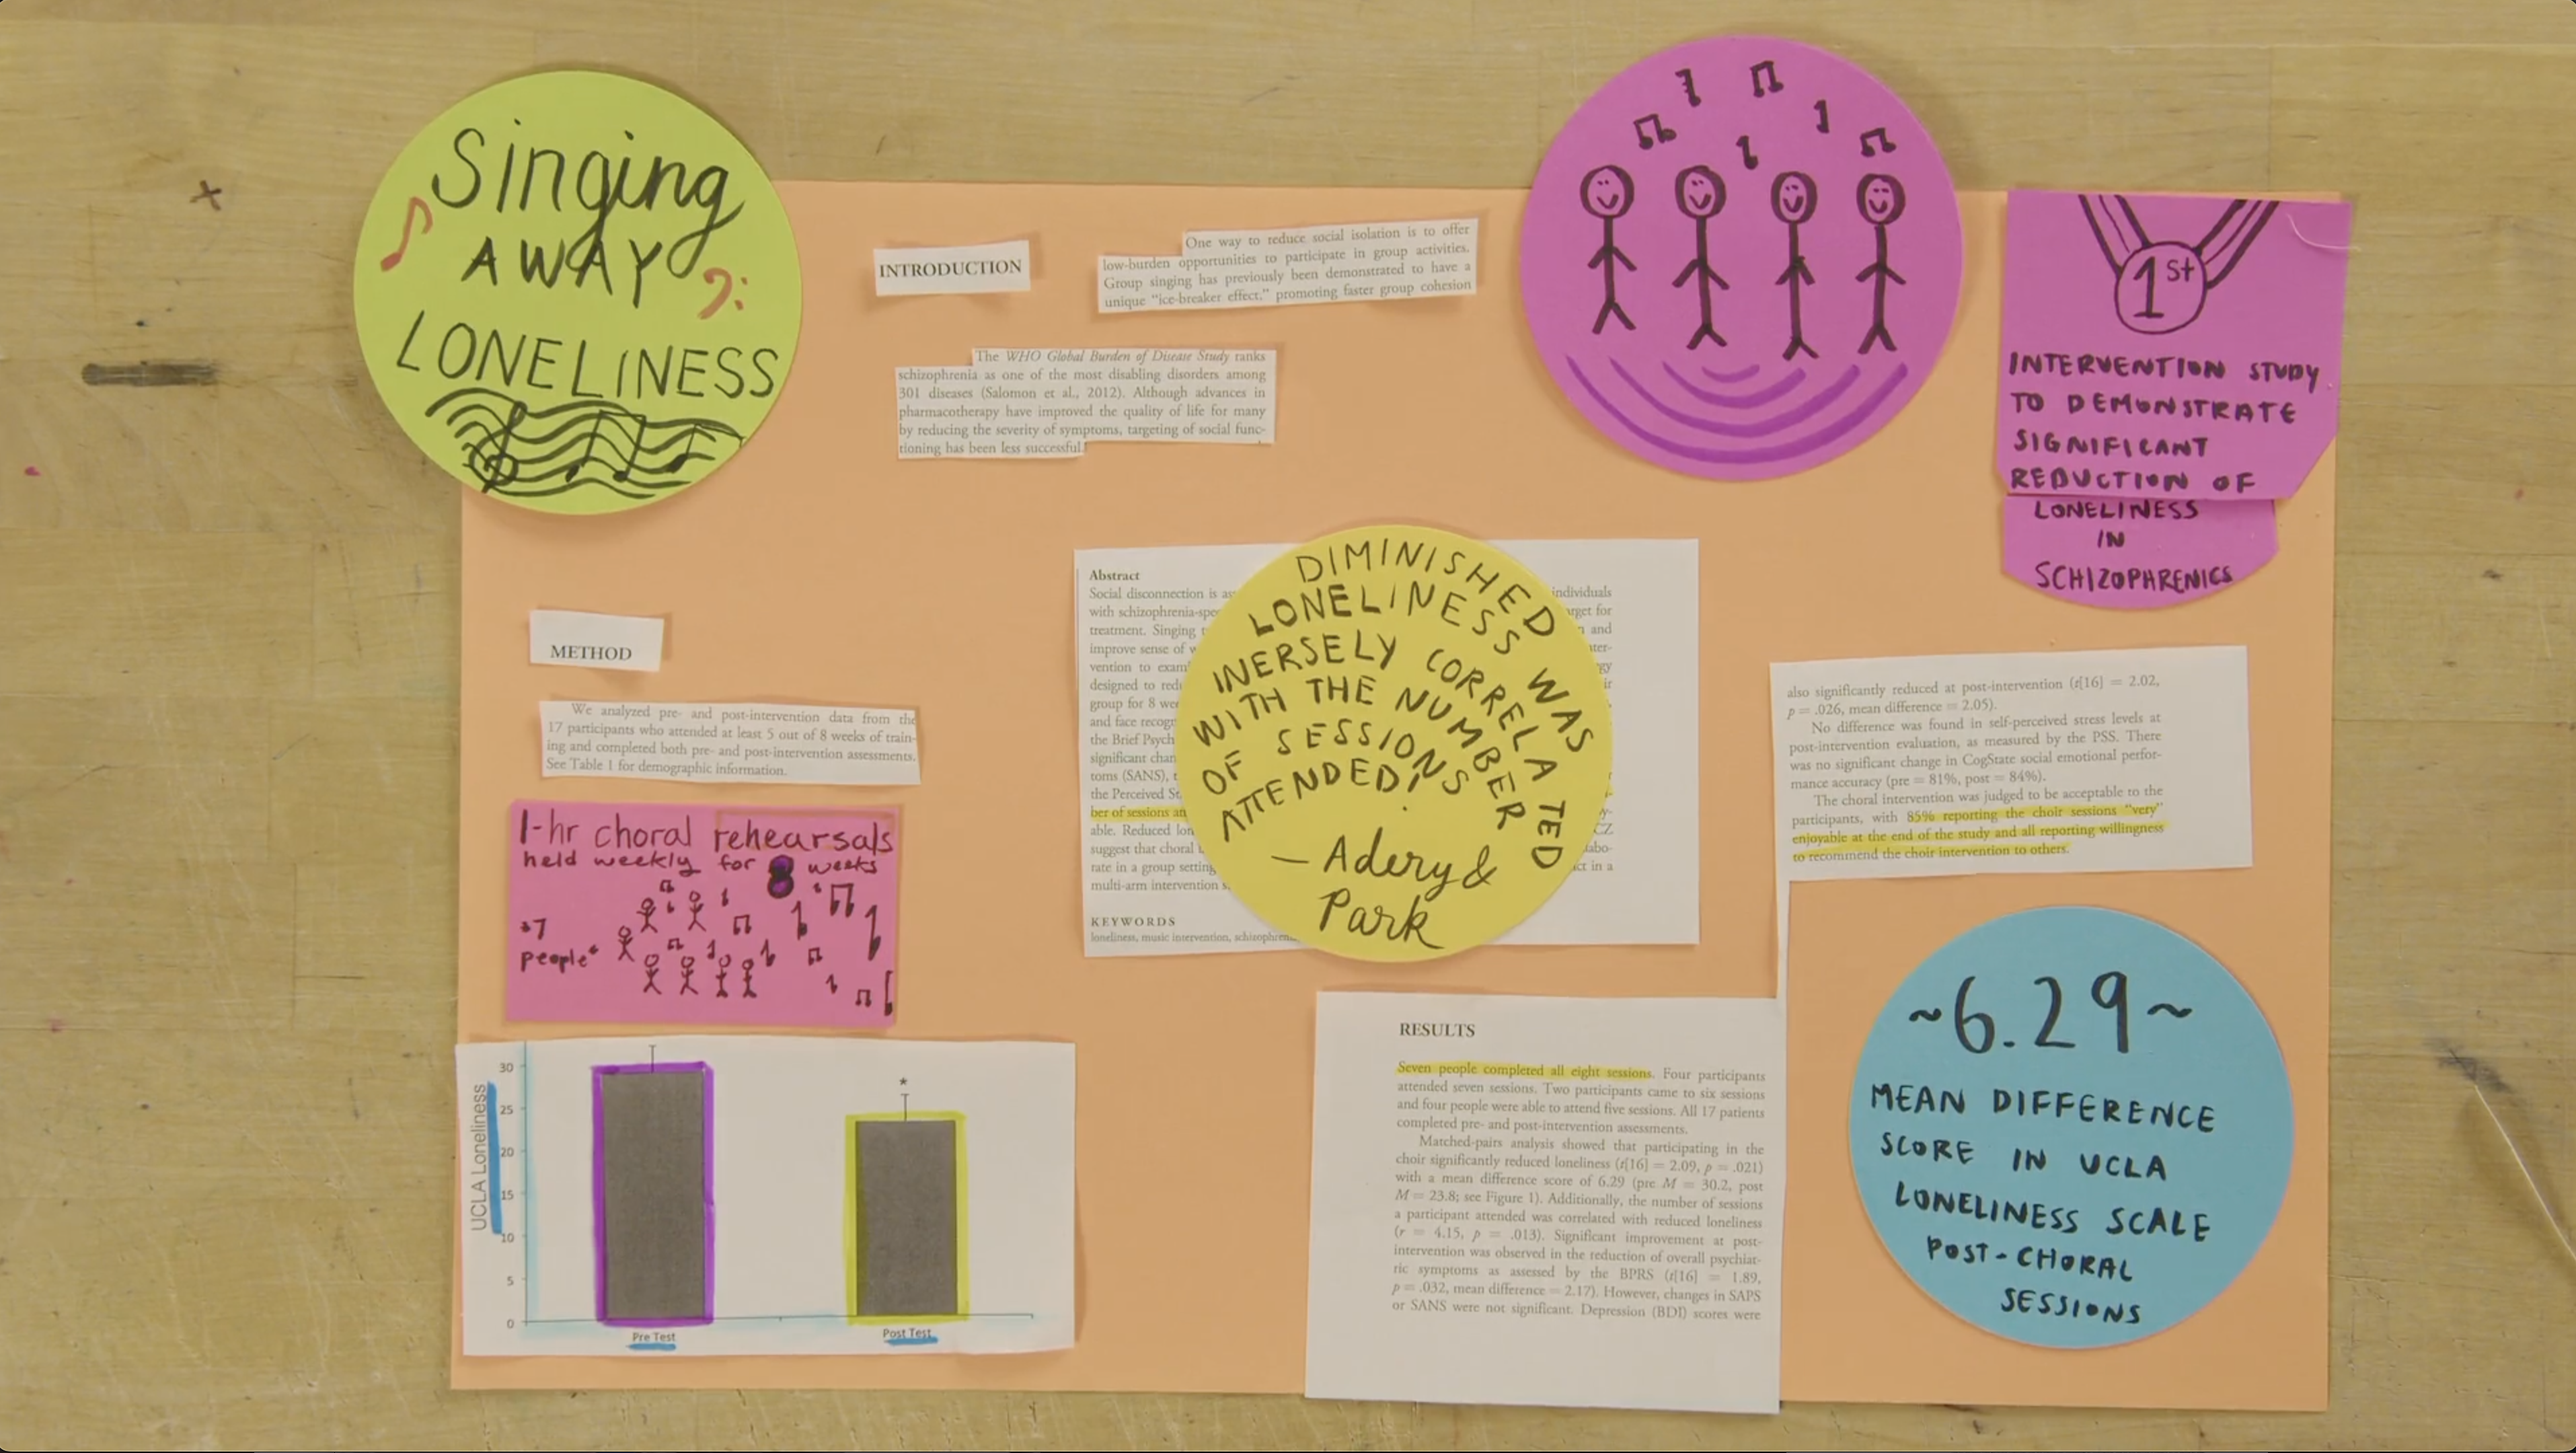 Singing
AWAY
LONELINESS
INTRODUCTION
One way to reduce social isolation is to offer
low-burden opportunities to participate in group activities.
Group singing has previously been demonstrated to have a
unique “ice-breaker effect,” promoting faster group cohesion
The WHO Global Burden of Disease Study ranks
schizophrenia as one of the most disabling disorders among
301 diseases (Salomon et al., 2012). Although advances in
pharmacotherapy have improved the quality of life for many
by reducing the severity of symptoms, targeting of social func-
tioning has been less successful.
1st
INTERVENTION STUDY
TO DEMONSTRATE
SIGNIFICANT
REDUCTION OF
LONELINESS
IN
SCHIZOPHRENICS
METHOD
We analyzed pre- and post-intervention data from the
17 participants who attended at least 5 out of 8 weeks of train-
ing and completed both pre- and post-intervention assessments.
See Table 1 for demographic information.
1-hr choral rehearsals
held weekly for 8 weeks
people
UCLA Loneliness
30
25
20
15
10
5
0
*
Pre Test
Post Test
Abstract
Social disconnection is individuals
with schizophrenia-
treatment. Singing and
improve sense of
vention to
designed to
group for 8
and face
the Brief
significant
toms (SANS),
the Perceived
ber of sessions
able. Reduced
suggest that choral
rate in a group setting in a
multi-arm intervention
KEYWORDS
loneliness, music intervention,
DIMINISHED
LONELINESS WAS
INERSELY CORRELATED
WITH THE NUMBER
OF SESSIONS
ATTENDED!
— Adery &
Park
also significantly reduced at post-intervention (t[16] = 2.02,
p = .026, mean difference = 2.05).
No difference was found in self-perceived stress levels at
post-intervention evaluation, as measured by the PSS. There
was no significant change in CogState social emotional perfor-
mance accuracy (pre = 81%, post = 84%).
The choral intervention was judged to be acceptable to the
participants, with 85% reporting the choir sessions “very”
enjoyable at the end of the study and all reporting willingness
to recommend the choir intervention to others.
RESULTS
Seven people completed all eight sessions. Four participants
attended seven sessions. Two participants came to six sessions
and four people were able to attend five sessions. All 17 patients
completed pre- and post-intervention assessments.
Matched-pairs analysis showed that participating in the
choir significantly reduced loneliness (t[16] = 2.09, p = .021)
with a mean difference score of 6.29 (pre M = 30.2, post
M = 23.8; see Figure 1). Additionally, the number of sessions
a participant attended was correlated with reduced loneliness
(r = 4.15, p = .013). Significant improvement at post-
intervention was observed in the reduction of overall psychiat-
ric symptoms as assessed by the BPRS (t[16] = 1.89,
p = .032, mean difference = 2.17). However, changes in SAPS
or SANS were not significant. Depression (BDI) scores were
~6.29~
MEAN DIFFERENCE
SCORE IN UCLA
LONELINESS SCALE
POST-CHORAL
SESSIONS